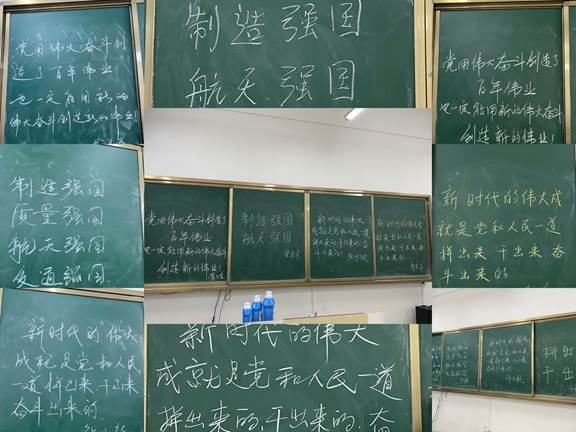 党用伟大奋斗创
造了百年伟业
也一定能用新的
伟大奋斗创造新的伟业！
制造强国
航天强国
党用伟大奋斗创造了
百年伟业
也一定能用新的伟大奋斗
创造新的伟业！
制造强国
质量强国
航天强国
交通强国
党用伟大奋斗创造了
百年伟业
也一定能用新的伟大奋斗
创造新的伟业！
制造强国
航天强国
新时代的伟大
成就是党和人民一道
拼出来 干出来
新时代的伟大成
就是党和人民一道
拼出来 干出来 奋
斗出来的
新时代的伟大
成就是党和人民
一道拼出来 干出来
奋斗出来的
新时代的伟大
成就是党和人民一道
拼出来的、干出来的、奋
拼出
干出